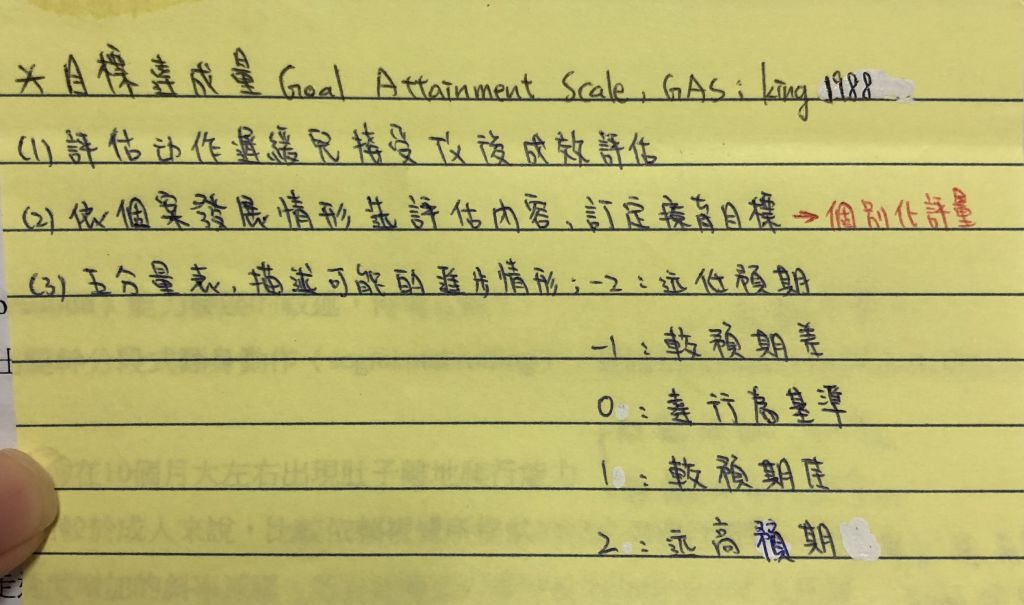 * 目標達成量 Goal Attainment Scale, GAS; king 1988
(1) 評估动作遲緩兒接受TX後成效評估
(2) 依個案發展情形並評估內容,訂定療育目標 → 個別化評量
(3) 五分量表,描述可能的進步情形; -2 : 远低預期
-1 : 較預期差
0 : 達行為基準
1 : 較預期佳
2 : 远高預期